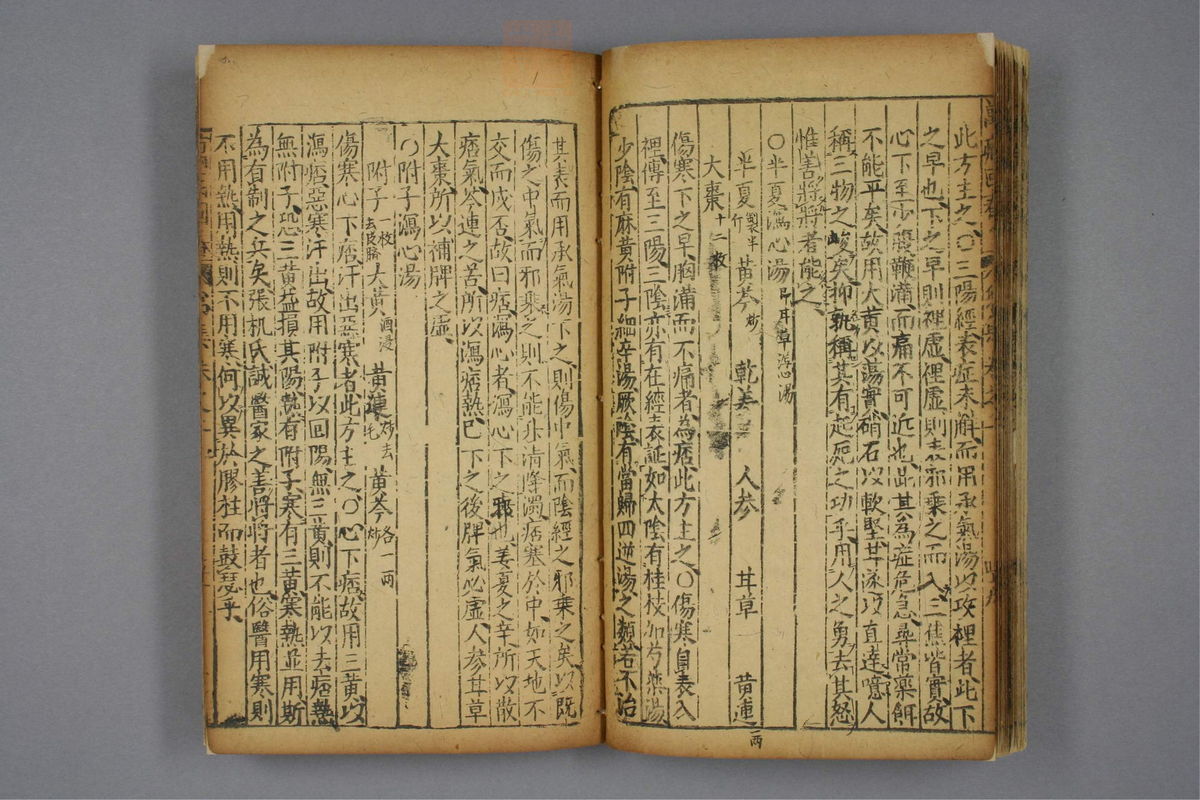 此方主之〇三陽經表症未解而用承氣湯以攻裡者此下
之早也下之早則裡虛裡虛則表邪乘之而入三焦皆實故
心下至少腹鞕滿而痛不可近也此其為症危急尋常藥餌
不能平矣故用大黄以蕩實硝石以軟堅甘遂以直達噫人
稱三物之峻矣抑孰稱其有起死之功乎用人之勇去其怒
惟善將將者能之
〇半夏瀉心湯 即甘草瀉心湯
半夏 製半斤 黄芩 炒 乾姜 人参 甘草 黄連 一兩
大棗 十二枚
傷寒下之早胸滿而不痛者為痞此方主之〇傷寒自表入
裡傳至三陽三陰亦有在經表証如太陰有桂枝加芍藥湯
少陰有麻黄附子細辛湯厥陰有當歸四逆湯之類若不治
其表而用承氣湯下之則傷中氣而陰經之邪乘之矣以既
傷之中氣而邪乘之則不能升清降濁痞塞於中如天地不
交而成否故曰痞瀉心者瀉心下之邪也姜夏之辛所以散
痞氣芩連之苦所以瀉痞熱已下之後脾氣必虛人参甘草
大棗所以補脾之虛
〇附子瀉心湯
附子 一枚去皮臍 大黄 酒浸 黄連 炒去毛 黄芩 炒 各一兩
傷寒心下痞汗出惡寒者此方主之〇心下痞故用三黄以
瀉痞惡寒汗出故用附子以回陽無三黄則不能以去痞熱
無附子恐三黄益損其陽熱有附子寒有三黄寒熱並用斯
為有制之兵矣張机氏誠醫家之善將將者也俗醫用寒則
不用熱用熱則不用寒何以異於膠柱而鼓瑟乎